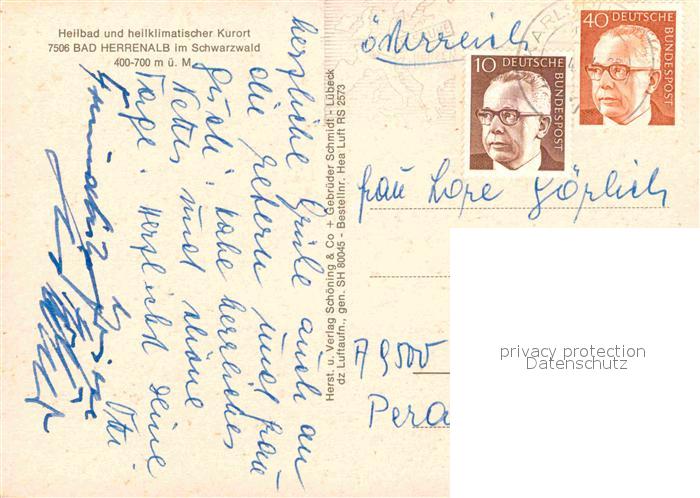 Heilbad und heilklimatischer Kurort
7506 BAD HERRENALB im Schwarzwald
400-700 m ü. M.
herzliche Grüße auch an
die Eltern und Frau
Gusti. Habe herrliches
Wetter und schöne
Tage. Herzlichst Deine
Otti
Herst. u. Verlag Schöning & Co + Gebrüder Schmidt - Lübeck
dz Luftaufn., gen. SH 80045 - Bestellnr. Hea Luft RS 2573
Österreich
10 DEUTSCHE
BUNDESPOST
40 DEUTSCHE
BUNDESPOST
Frau Lore Görlich
A 9500
privacy protection
Datenschutz